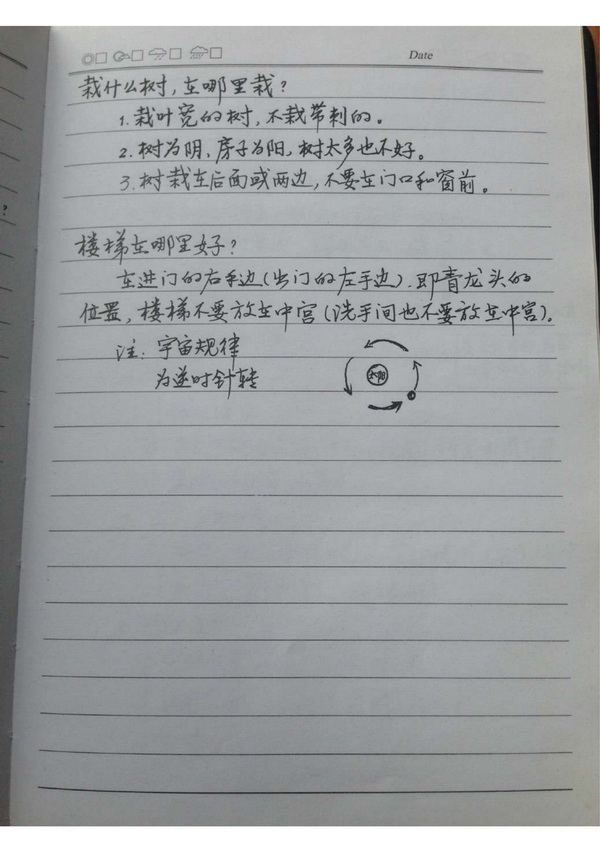 Date
栽什么树，在哪里栽？
1. 栽叶宽的树，不栽带刺的。
2. 树为阴，房子为阳，树太多也不好。
3. 树栽在后面或两边，不要在门口和窗前。
楼梯在哪里好？
在进门的右手边（出门的左手边）．即青龙头的
位置，楼梯不要放在中宫（洗手间也不要放在中宫）．
注：宇宙规律
为逆时针转
太阳
?